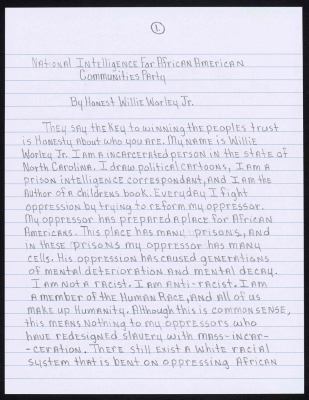 1.
National Intelligence for African American
Communities Party
By Honest Willie Worley Jr.
They say the key to winning the peoples trust
is Honesty about who you are. My name is Willie
Worley Jr. I am a incarcerated person in the state of
North Carolina. I draw political cartoons, I am a
prison intelligence correspondant, and I am the
Author of a childrens book. Everyday I fight
oppression by trying to reform my oppressor.
My oppressor has prepared a place for African
Americans. This place has many prisons, and
in these prisons my oppressor has many
cells. His oppression has caused generations
of mental deterioration and mental decay.
I am not a racist. I am anti-racist. I am
a member of the Human Race, and all of us
make up Humanity. Although this is common sense,
this means nothing to my oppressors who
have redesigned slavery with mass-incar-
-ceration. There still exist a white racial
system that is bent on oppressing African